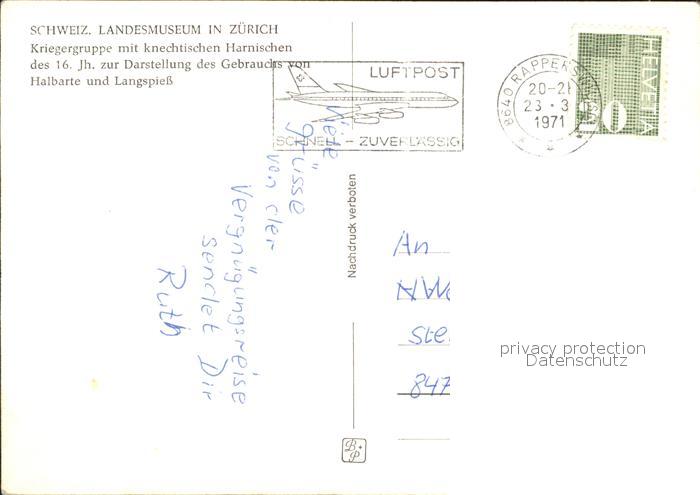 SCHWEIZ. LANDESMUSEUM IN ZÜRICH
Kriegergruppe mit knechtischen Harnischen
des 16. Jh. zur Darstellung des Gebrauchs von
Halbarte und Langspieß
LUFTPOST
SCHNELL - ZUVERLÄSSIG
8640 RAPPERSWIL
20-21
23.3
1971
HELVETIA
Viele
Grüsse
von der
Vergnügungsreise
sendet Dir
Ruth
Nachdruck verboten
An
Ste
847
privacy protection
Datenschutz
B+P